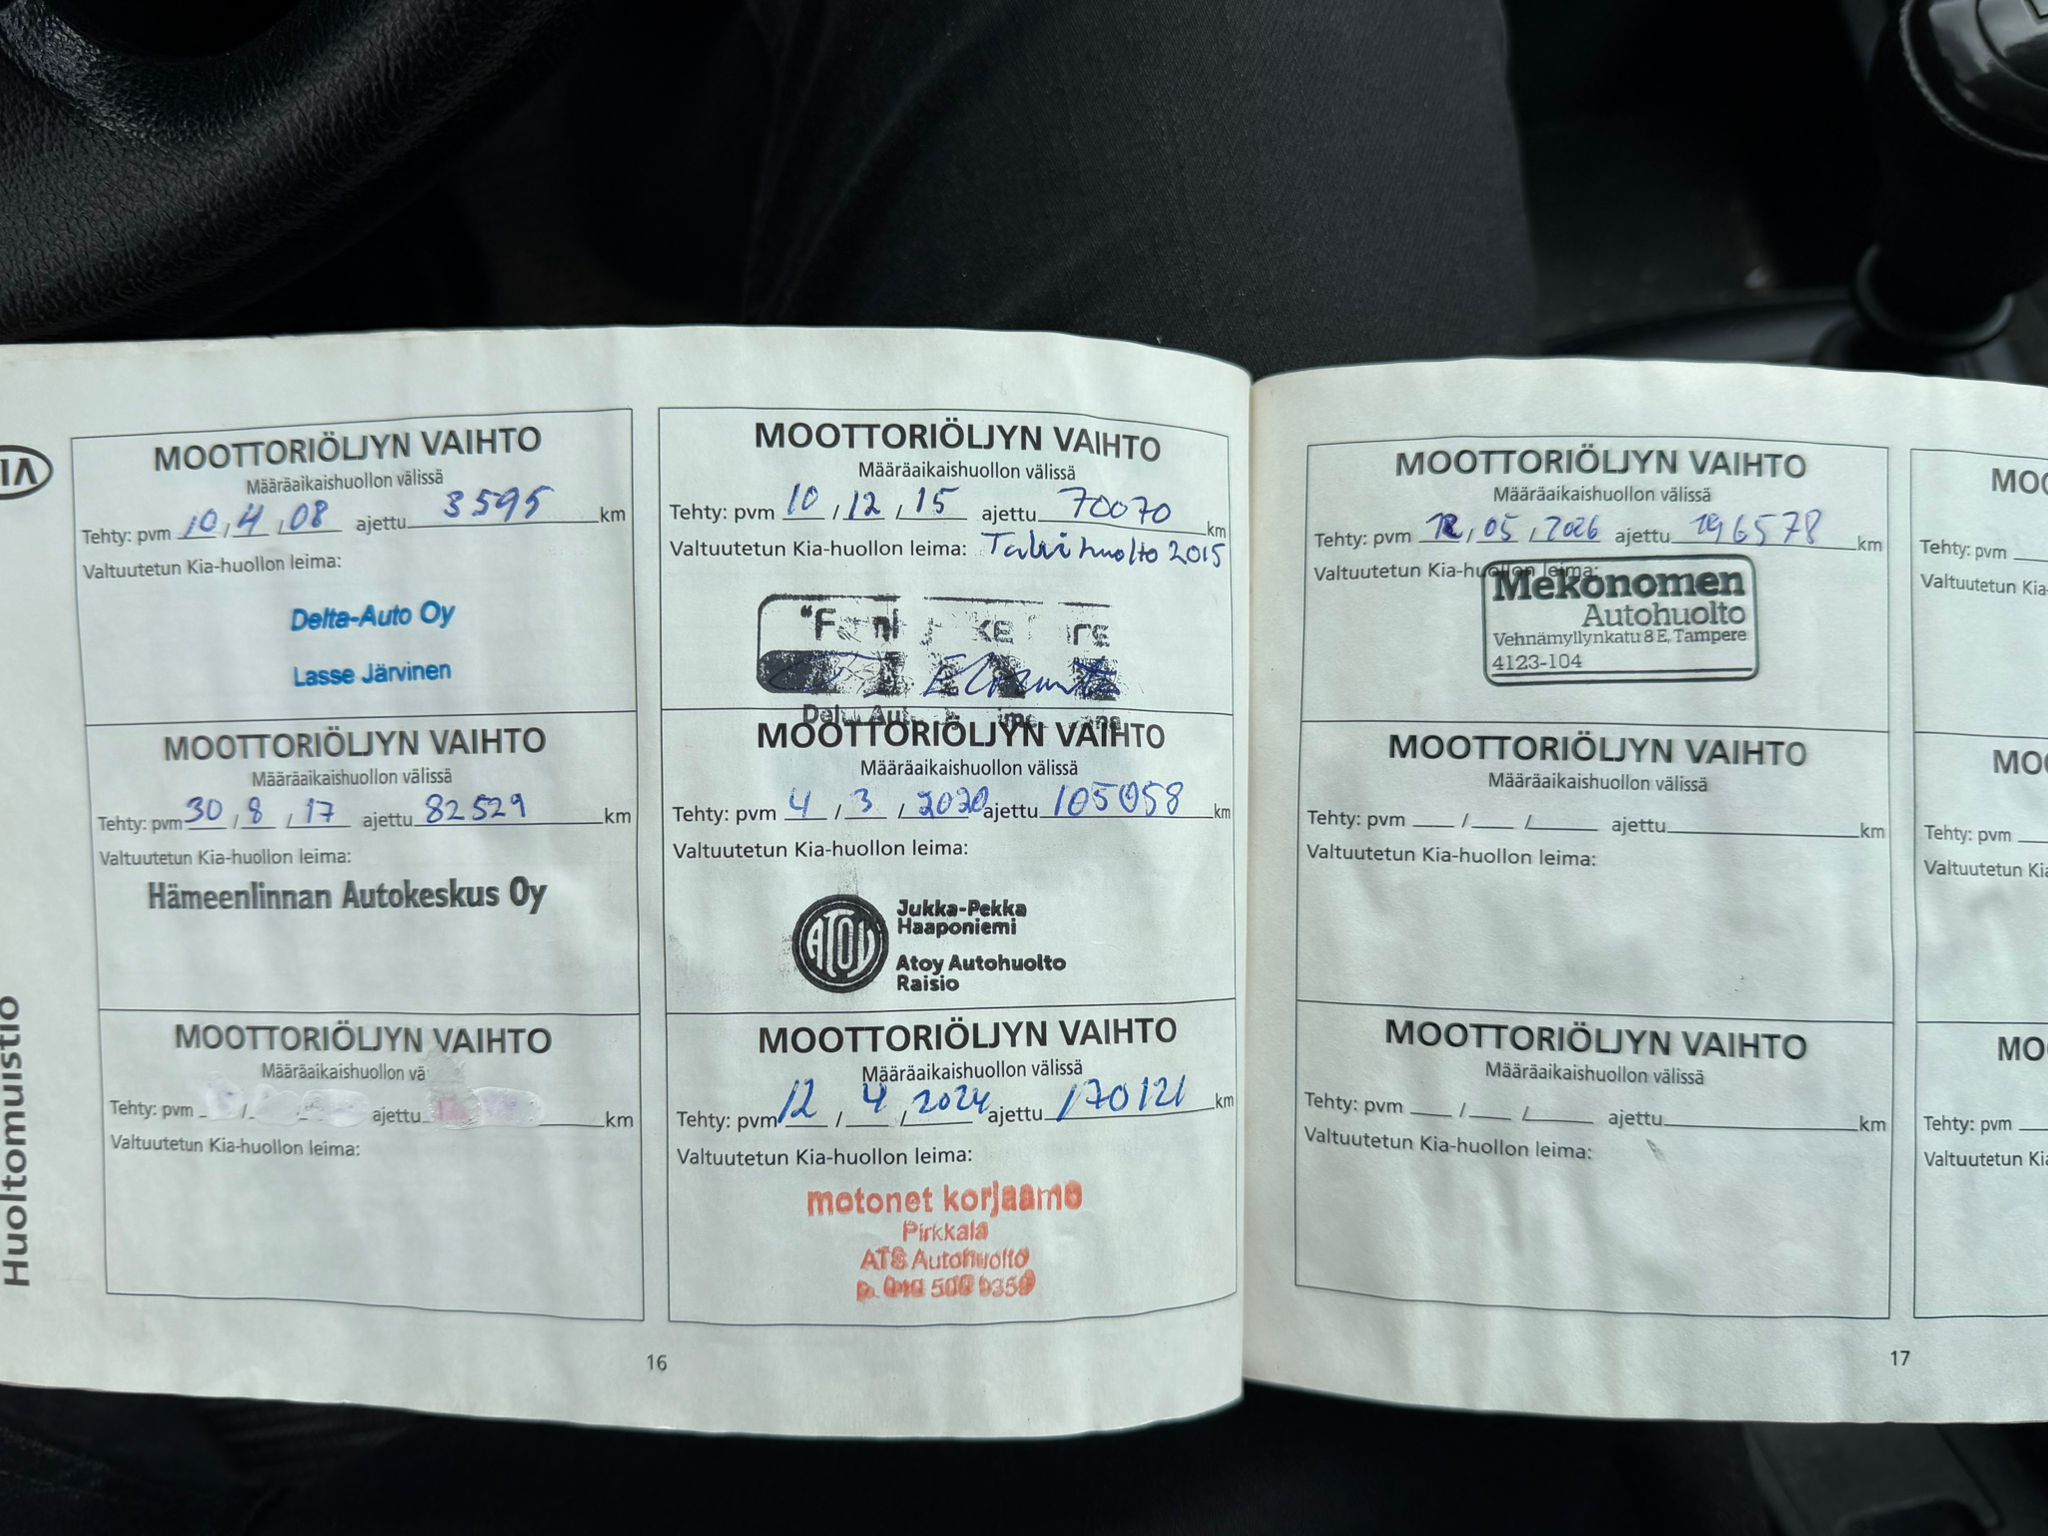 KIA
Huoltomuistio
MOOTTORIÖLJYN VAIHTO
Määräaikaishuollon välissä
Tehty: pvm 10 / 4 / 08 ajettu 3595 km
Valtuutetun Kia-huollon leima:
Delta-Auto Oy
Lasse Järvinen
MOOTTORIÖLJYN VAIHTO
Määräaikaishuollon välissä
Tehty: pvm 30 / 8 / 17 ajettu 82529 km
Valtuutetun Kia-huollon leima:
Hämeenlinnan Autokeskus Oy
MOOTTORIÖLJYN VAIHTO
Määräaikaishuollon vä
Tehty: pvm / ajettu km
Valtuutetun Kia-huollon leima:
MOOTTORIÖLJYN VAIHTO
Määräaikaishuollon välissä
Tehty: pvm 10 / 12 / 15 ajettu 70070 km
Valtuutetun Kia-huollon leima: Talvihuolto 2015
MOOTTORIÖLJYN VAIHTO
Määräaikaishuollon välissä
Tehty: pvm 4 / 3 / 2020 ajettu 105058 km
Valtuutetun Kia-huollon leima:
ATOY
Jukka-Pekka
Haaponiemi
Atoy Autohuolto
Raisio
MOOTTORIÖLJYN VAIHTO
Määräaikaishuollon välissä
Tehty: pvm 12 / 4 / 2024 ajettu 170121 km
Valtuutetun Kia-huollon leima:
motonet korjaamo
Pirkkala
ATS Autohuolto
16
MOOTTORIÖLJYN VAIHTO
Määräaikaishuollon välissä
Tehty: pvm 12 / 05 / 2026 ajettu 196578 km
Valtuutetun Kia-huollon leima:
Mekonomen
Autohuolto
Vehnämyllynkatu 8 E, Tampere
4123-104
MOOTTORIÖLJYN VAIHTO
Määräaikaishuollon välissä
Tehty: pvm / / ajettu km
Valtuutetun Kia-huollon leima:
MOOTTORIÖLJYN VAIHTO
Määräaikaishuollon välissä
Tehty: pvm / / ajettu km
Valtuutetun Kia-huollon leima:
MOO
Tehty: pvm
Valtuutetun Kia-
MOO
Tehty: pvm
Valtuutetun Kia
MO
Tehty: pvm
Valtuutetun Kia
17